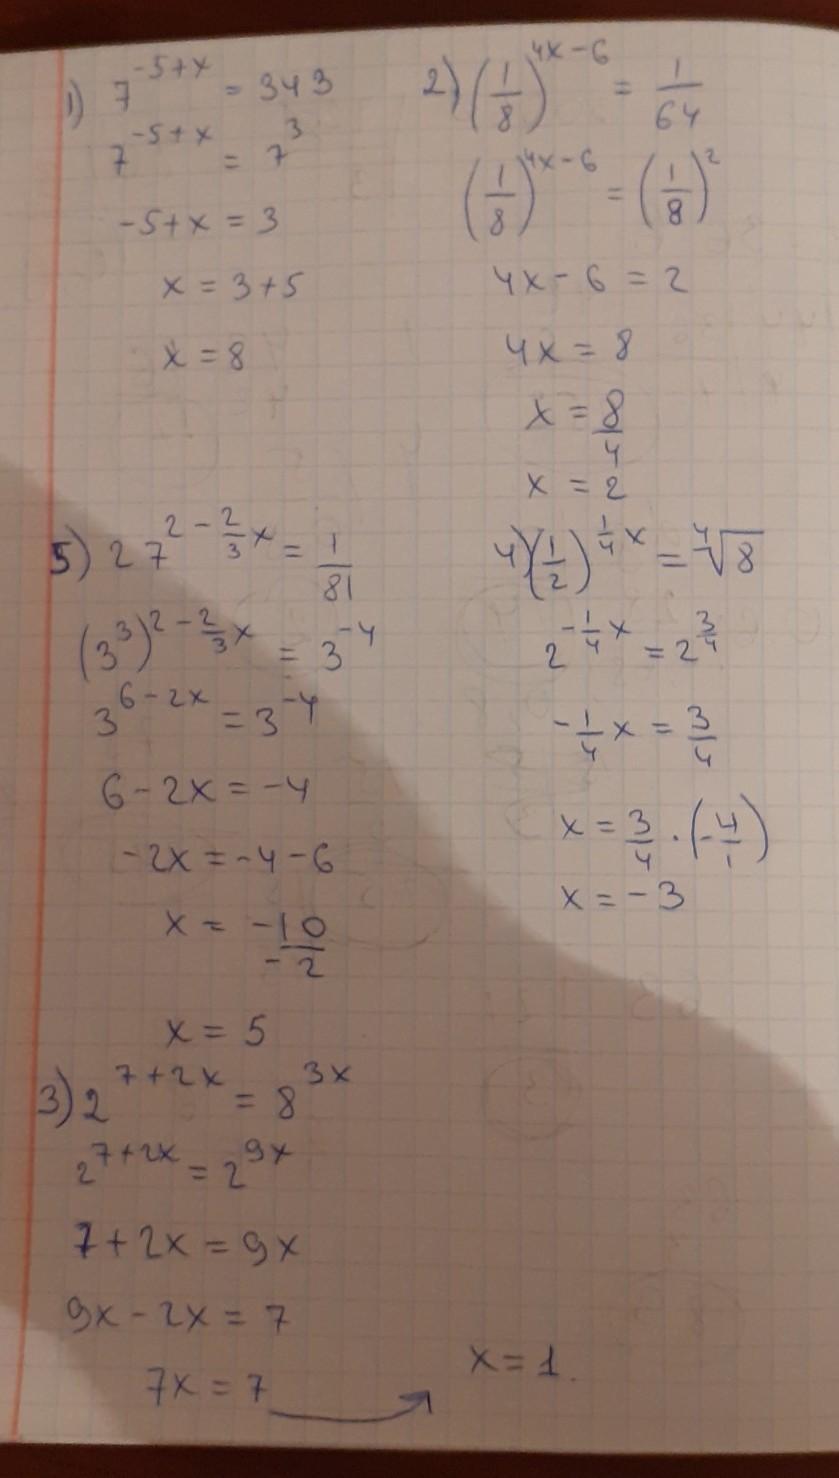 1) 7^(-5+x) = 343
7^(-5+x) = 7^3
-5+x = 3
x = 3+5
x = 8
2) (1/8)^(4x-6) = 1/64
(1/8)^(4x-6) = (1/8)^2
4x-6 = 2
4x = 8
x = 8/4
x = 2
5) 27^(2-2/3x) = 1/81
(3^3)^(2-2/3x) = 3^(-4)
3^(6-2x) = 3^(-4)
6-2x = -4
-2x = -4-6
x = -10/-2
x = 5
4) (1/2)^(1/4x) = ⁴√8
2^(-1/4x) = 2^(3/4)
-1/4x = 3/4
x = 3/4·(-4/1)
x = -3
3) 2^(7+2x) = 8^(3x)
2^(7+2x) = 2^(9x)
7+2x = 9x
9x-2x = 7
7x = 7 → x = 1.